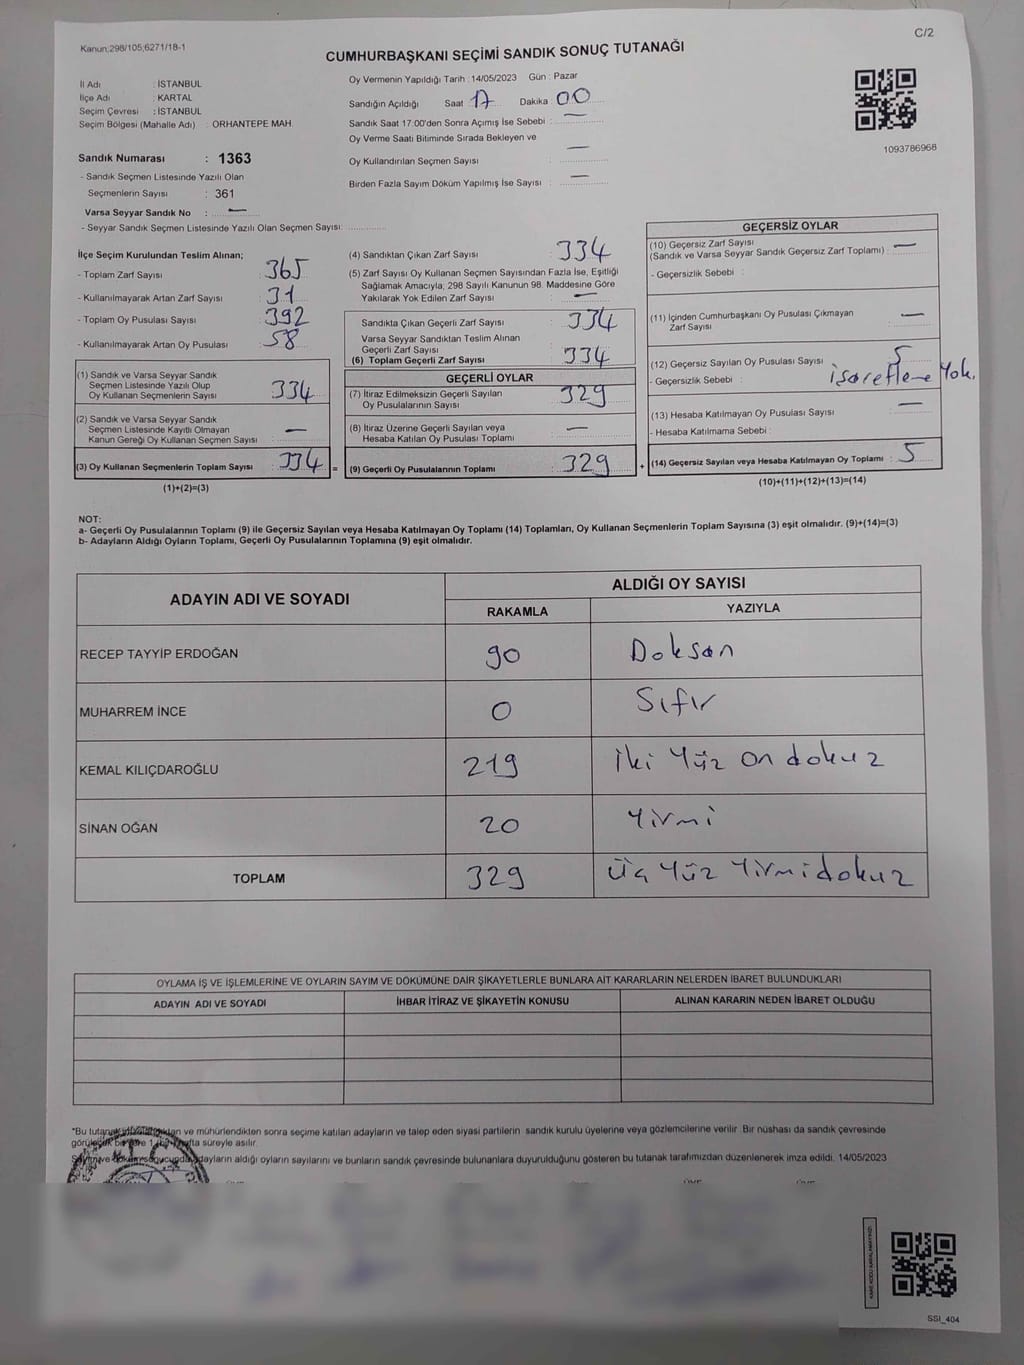 Kanun;298/105;6271/18-1
C/2
CUMHURBAŞKANI SEÇİMİ SANDIK SONUÇ TUTANAĞI
İl Adı : İSTANBUL
İlçe Adı : KARTAL
Seçim Çevresi : İSTANBUL
Seçim Bölgesi (Mahalle Adı) : ORHANTEPE MAH.
Sandık Numarası : 1363
- Sandık Seçmen Listesinde Yazılı Olan
Seçmenlerin Sayısı : 361
Varsa Seyyar Sandık No : —
- Seyyar Sandık Seçmen Listesinde Yazılı Olan Seçmen Sayısı:
Oy Vermenin Yapıldığı Tarih : 14/05/2023 Gün : Pazar
Sandığın Açıldığı Saat 17 Dakika 00
Sandık Saat 17:00'den Sonra Açımış İse Sebebi : —
Oy Verme Saati Bitiminde Sırada Bekleyen ve
Oy Kullandırılan Seçmen Sayısı : —
Birden Fazla Sayım Döküm Yapılmış İse Sayısı : —
1093786968
İlçe Seçim Kurulundan Teslim Alınan;
- Toplam Zarf Sayısı : 365
- Kullanılmayarak Artan Zarf Sayısı : 31
- Toplam Oy Pusulası Sayısı : 392
- Kullanılmayarak Artan Oy Pusulası : 58
(1) Sandık ve Varsa Seyyar Sandık
Seçmen Listesinde Yazılı Olup
Oy Kullanan Seçmenlerin Sayısı : 334
(2) Sandık ve Varsa Seyyar Sandık
Seçmen Listesinde Kayıtlı Olmayan
Kanun Gereği Oy Kullanan Seçmen Sayısı : —
(3) Oy Kullanan Seçmenlerin Toplam Sayısı : 334 =
(1)+(2)=(3)
(4) Sandıktan Çıkan Zarf Sayısı : 334
(5) Zarf Sayısı Oy Kullanan Seçmen Sayısından Fazla İse, Eşitliği
Sağlamak Amacıyla; 298 Sayılı Kanunun 98. Maddesine Göre
Yakılarak Yok Edilen Zarf Sayısı : —
Sandıkta Çıkan Geçerli Zarf Sayısı : 334
Varsa Seyyar Sandıktan Teslim Alınan
Geçerli Zarf Sayısı
(6) Toplam Geçerli Zarf Sayısı : 334
GEÇERLİ OYLAR
(7) İtiraz Edilmeksizin Geçerli Sayılan
Oy Pusulalarının Sayısı : 329
(8) İtiraz Üzerine Geçerli Sayılan veya
Hesaba Katılan Oy Pusulası Toplamı : —
(9) Geçerli Oy Pusulalarının Toplamı : 329 +
GEÇERSİZ OYLAR
(10) Geçersiz Zarf Sayısı
(Sandık ve Varsa Seyyar Sandık Geçersiz Zarf Toplamı) : —
- Geçersizlik Sebebi :
(11) İçinden Cumhurbaşkanı Oy Pusulası Çıkmayan
Zarf Sayısı : —
(12) Geçersiz Sayılan Oy Pusulası Sayısı : 5
- Geçersizlik Sebebi : işaretleme Yok.
(13) Hesaba Katılmayan Oy Pusulası Sayısı : —
- Hesaba Katılmama Sebebi :
(14) Geçersiz Sayılan veya Hesaba Katılmayan Oy Toplamı : 5
(10)+(11)+(12)+(13)=(14)
NOT:
a- Geçerli Oy Pusulalarının Toplamı (9) ile Geçersiz Sayılan veya Hesaba Katılmayan Oy Toplamı (14) Toplamları, Oy Kullanan Seçmenlerin Toplam Sayısına (3) eşit olmalıdır. (9)+(14)=(3)
b- Adayların Aldığı Oyların Toplamı, Geçerli Oy Pusulalarının Toplamına (9) eşit olmalıdır.
ADAYIN ADI VE SOYADI
ALDIĞI OY SAYISI
RAKAMLA YAZIYLA
RECEP TAYYİP ERDOĞAN 90 Doksan
MUHARREM İNCE 0 Sıfır
KEMAL KILIÇDAROĞLU 219 İki Yüz on dokuz
SİNAN OĞAN 20 Yirmi
TOPLAM 329 Üç Yüz Yirmi dokuz
OYLAMA İŞ VE İŞLEMLERİNE VE OYLARIN SAYIM VE DÖKÜMÜNE DAİR ŞİKAYETLERLE BUNLARA AİT KARARLARIN NELERDEN İBARET BULUNDUKLARI
ADAYIN ADI VE SOYADI İHBAR İTİRAZ VE ŞİKAYETİN KONUSU ALINAN KARARIN NEDEN İBARET OLDUĞU
"Bu tutanak ve mühürlendikten sonra seçime katılan adayların ve talep eden siyasi partilerin sandık kurulu üyelerine veya gözlemcilerine verilir. Bir nüshası da sandık çevresinde
hafta süreyle asılır.
adayların aldığı oyların sayılarını ve bunların sandık çevresinde bulunanlara duyurulduğunu gösteren bu tutanak tarafımızdan düzenlenerek imza edildi. 14/05/2023
T.C.
SSI_404